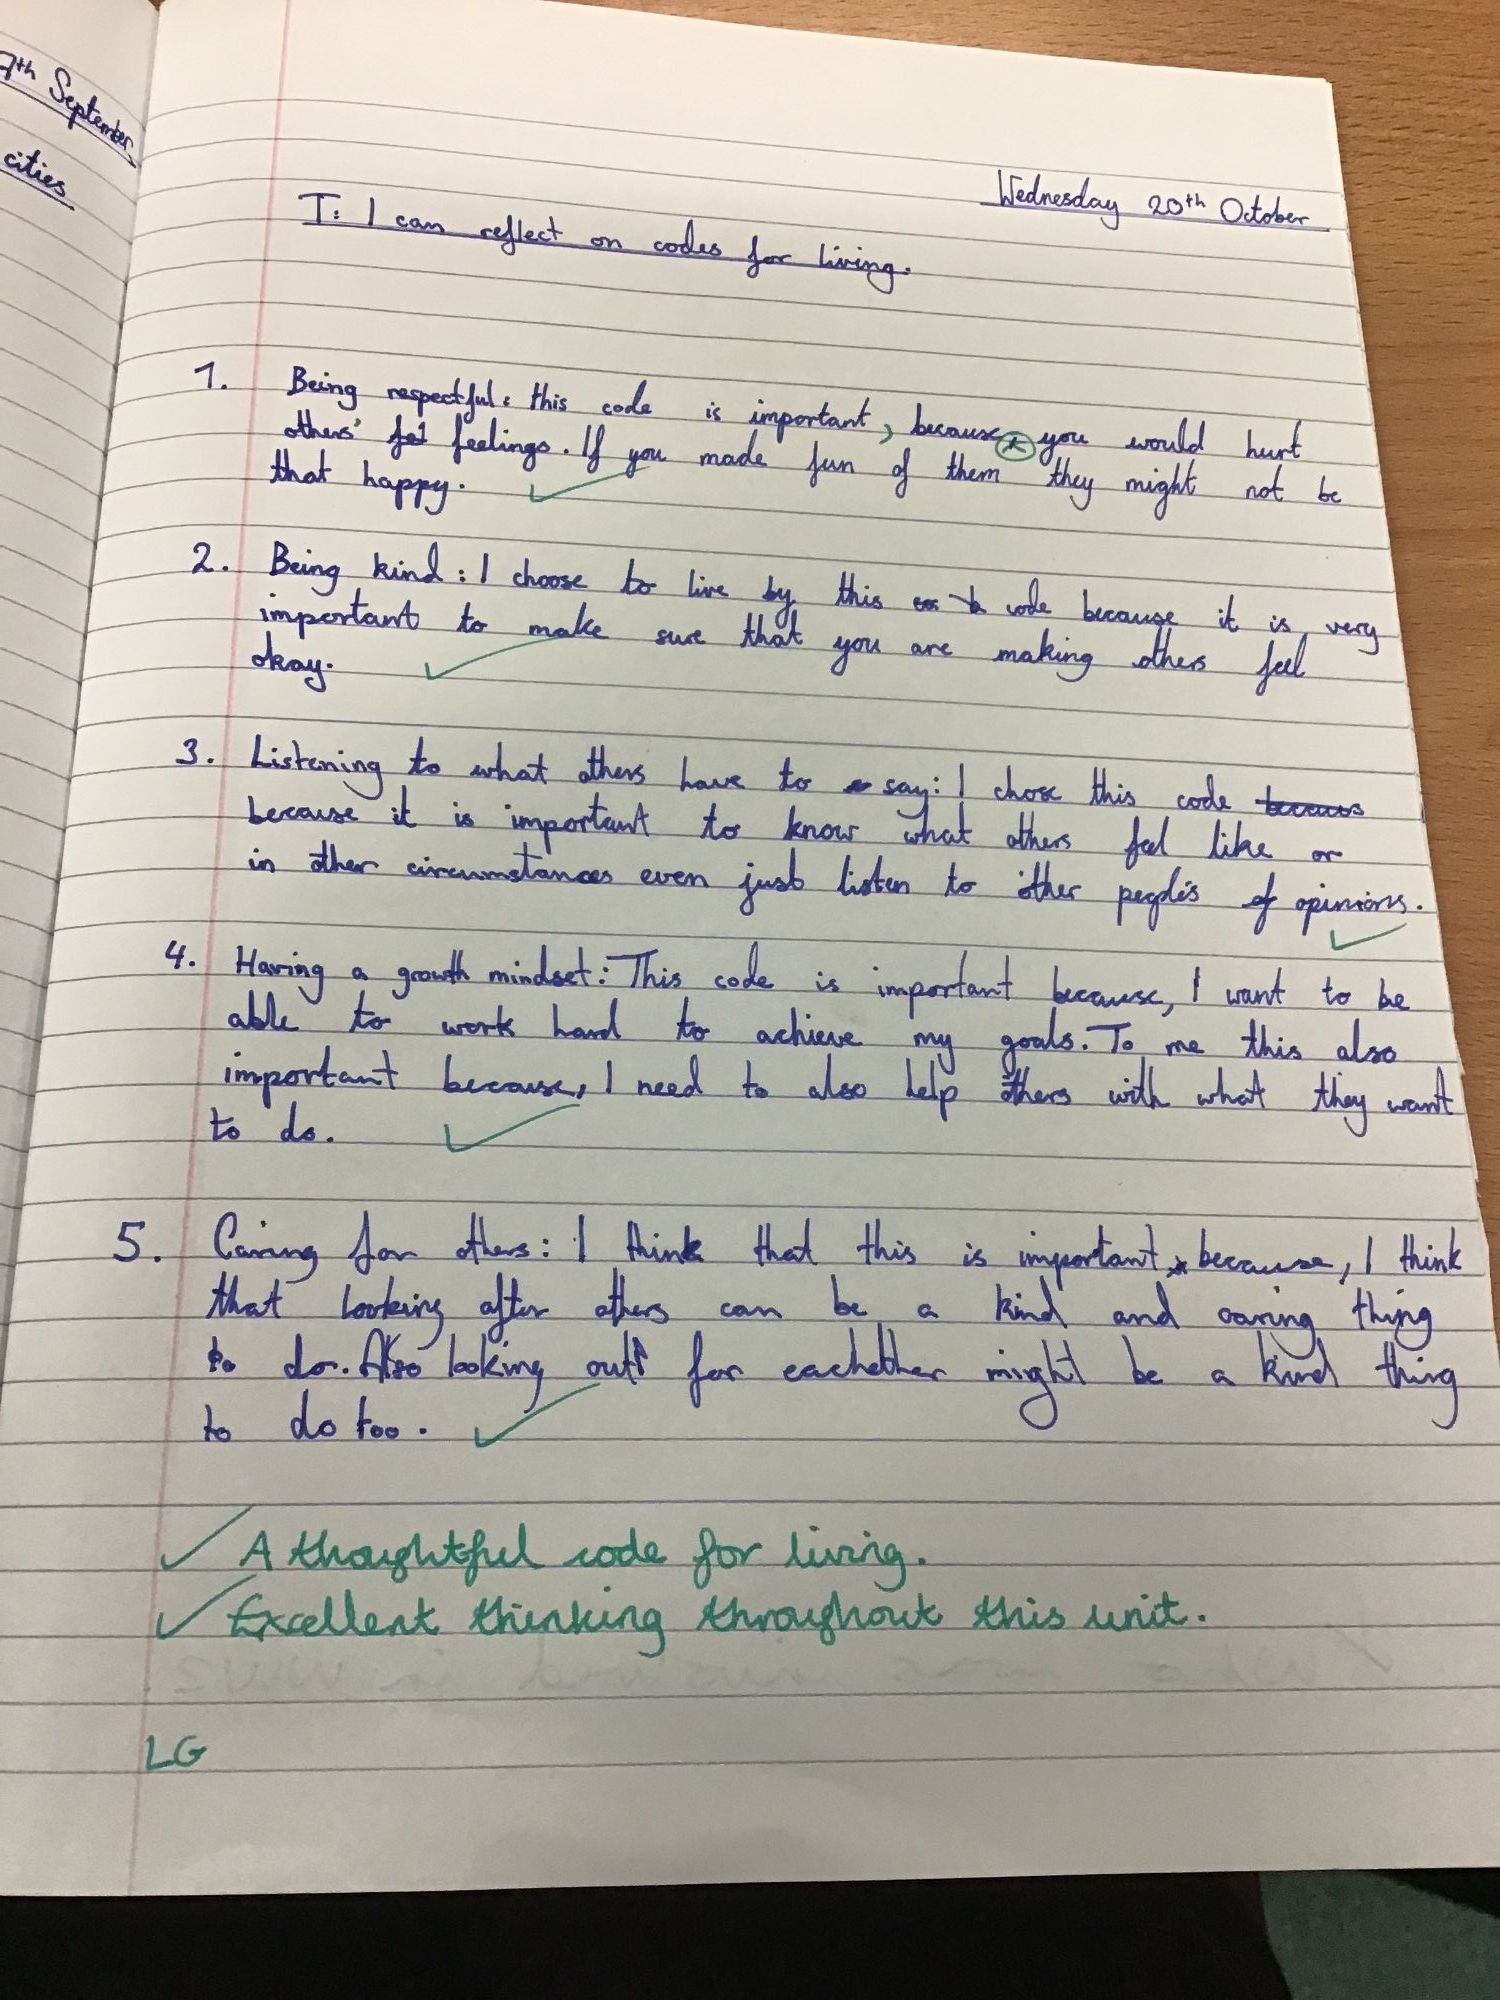 7th September
cities
Wednesday 20th October
T: I can reflect on codes for living.
1. Being respectful: this code is important, because you would hurt
others' feelings. If you made fun of them they might not be
that happy.
2. Being kind: I choose to live by this code because it is very
important to make sure that you are making others feel
okay.
3. Listening to what others have to say: I chose this code
because it is important to know what others feel like or
in other circumstances even just listen to other people's opinions.
4. Having a growth mindset: This code is important because, I want to be
able to work hard to achieve my goals. To me this also
important because, I need to also help others with what they want
to do.
5. Caring for others: I think that this is important because, I think
that looking after others can be a kind and caring thing
to do. Also looking out for eachother might be a kind thing
to do too.
A thoughtful code for living.
Excellent thinking throughout this unit.
LG